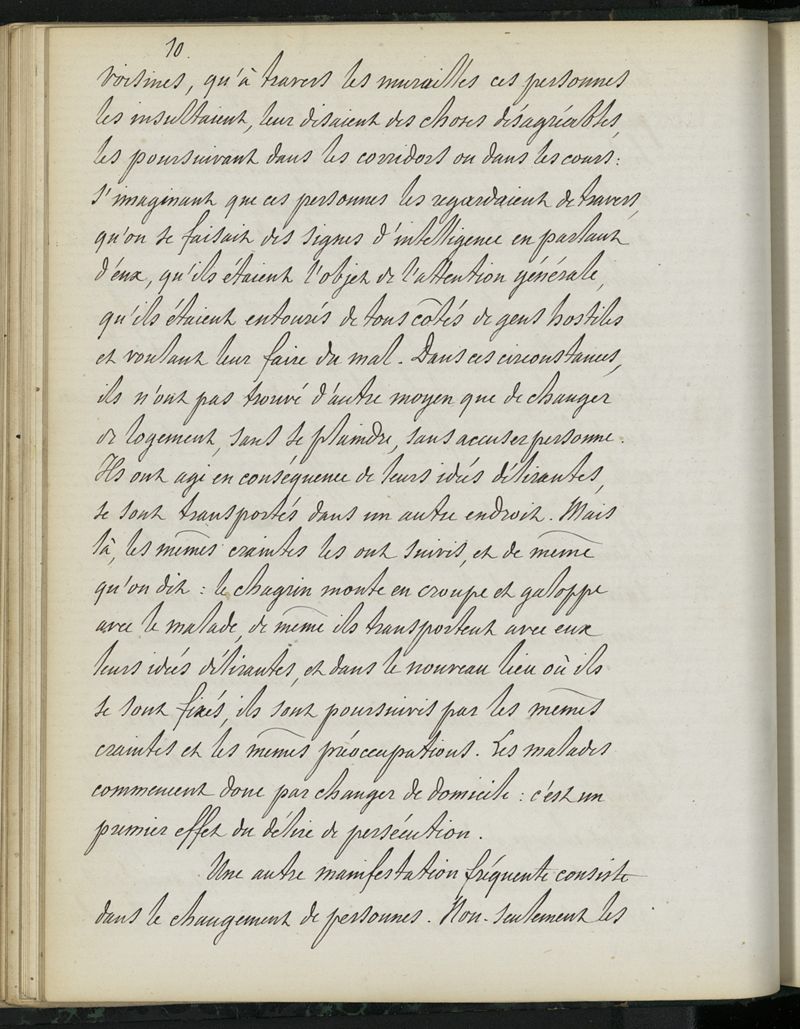 10
voisines, qu'à travers les murailles ces personnes
les insultaient, leur disaient des choses désagréables,
les poursuivant dans les corridors ou dans les cours :
s'imaginant que ces personnes les regardaient de travers,
qu'on se faisait des signes d'intelligence en parlant
d'eux, qu'ils étaient l'objet de l'attention générale,
qu'ils étaient entourés de tous côtés de gens hostiles
et voulant leur faire du mal. Dans ces circonstances,
ils n'ont pas trouvé d'autre moyen que de changer
de logement, sans se plaindre, sans accuser personne.
Ils ont agi en conséquence de leurs idées délirantes,
se sont transportés dans un autre endroit. Mais
là, les mêmes craintes les ont suivis, et de même
qu'on dit : le chagrin monte en croupe et galoppe
avec le malade, de même ils transportent avec eux
leurs idées délirantes, et dans le nouveau lieu où ils
se sont fixés, ils sont poursuivis par les mêmes
craintes et les mêmes préoccupations. Les malades
commencent donc par changer de domicile : c'est un
premier effet du délire de persécution.
Une autre manifestation fréquente consiste
dans le changement de personnes. Non-seulement les